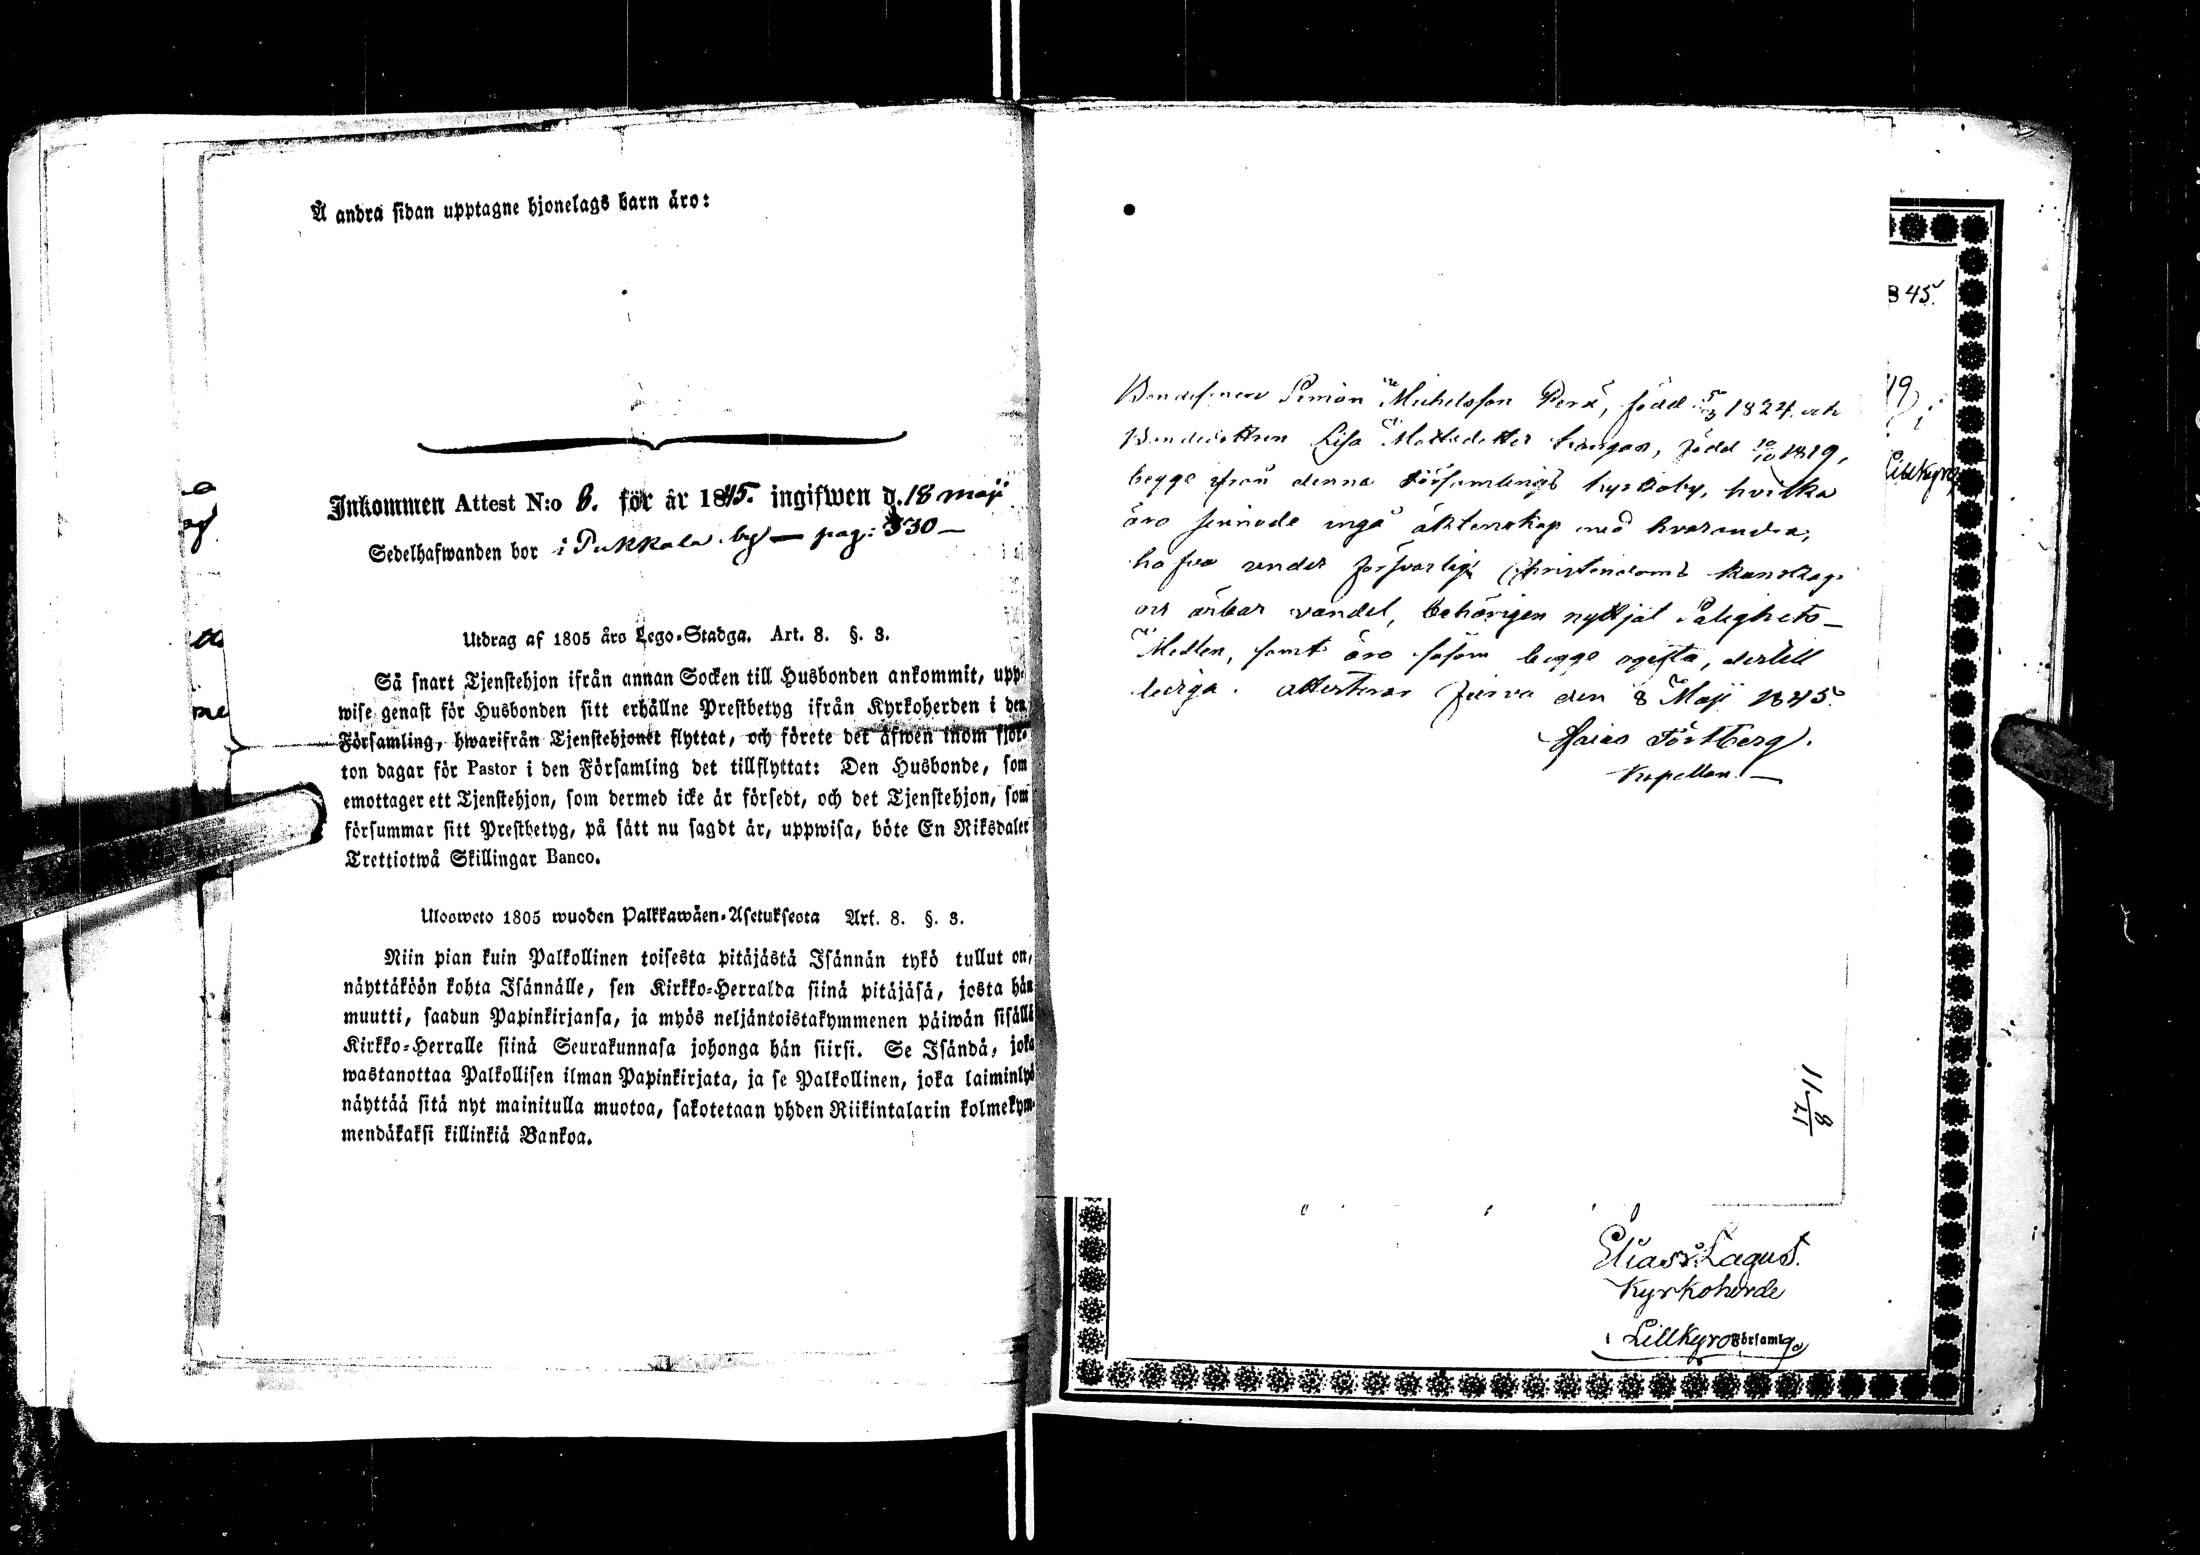 Å andra sidan upptagne hjonelags barn äro:
Inkommen Attest N:o 8. för år 1845. ingifwen d. 18 maji
Sedelhafwanden bor i Pukkala by — pag: 330 —
Utdrag af 1805 års Lego-Stadga. Art. 8. §. 3.
Så snart Tjenstehjon ifrån annan Socken till Husbonden ankommit, upp-
wise genast för Husbonden sitt erhållne Prestbetyg ifrån Kyrkoherden i den
Församling, hwarifrån Tjenstehjonet flyttat, och förete det äfwen inom fjor-
ton dagar för Pastor i den Församling det tillflyttat: Den Husbonde, som
emottager ett Tjenstehjon, som dermed icke är försedt, och det Tjenstehjon, som
försummar sitt Prestbetyg, på sätt nu sagdt är, uppwisa, böte En Riksdaler
Trettiotwå Skillingar Banco.
Ulosweto 1805 wuoden Palkkawäen-Asetuksesta Art. 8. §. 3.
Niin pian kuin Palkollinen toisesta pitäjästä Isännän tykö tullut on,
näyttäköön kohta Isännälle, sen Kirkko-Herralda siinä pitäjäsä, josta hän
muutti, saadun Papinkirjansa, ja myös neljäntoistakymmenen päiwän sisällä
Kirkko-Herralle siinä Seurakunnasa johonga hän siirsi. Se Isändä, joka
wastanottaa Palkollisen ilman Papinkirjata, ja se Palkollinen, joka laiminlyö
näyttää sitä nyt mainitulla muotoa, sakotetaan yhden Riikintalarin kolmekym-
mendäkaksi killinkiä Bankoa.
Bondesonen Simon Michelsson Perä, född 5/3 1824 och
Bondedottren Lisa Mattsdotter född 10/10 1819,
begge från denna Församlings kyrkoby, hvilka
äro sinnade ingå äktenskap med hvarandra,
hafva under försvarlig Christendoms kunskap
och ärbar vandel, behörigen nyttjat Salighets-
Medlen, samt äro såsom begge ogifta, dertill
lediga. Attesterar Jurva den 8 Maji 1845.
Esaias Förtberg.
Kapellan. —
845.
Lillkyro
11 8/21
Elias Lagus.
Kyrkoherde
i Lillkyro Församlg